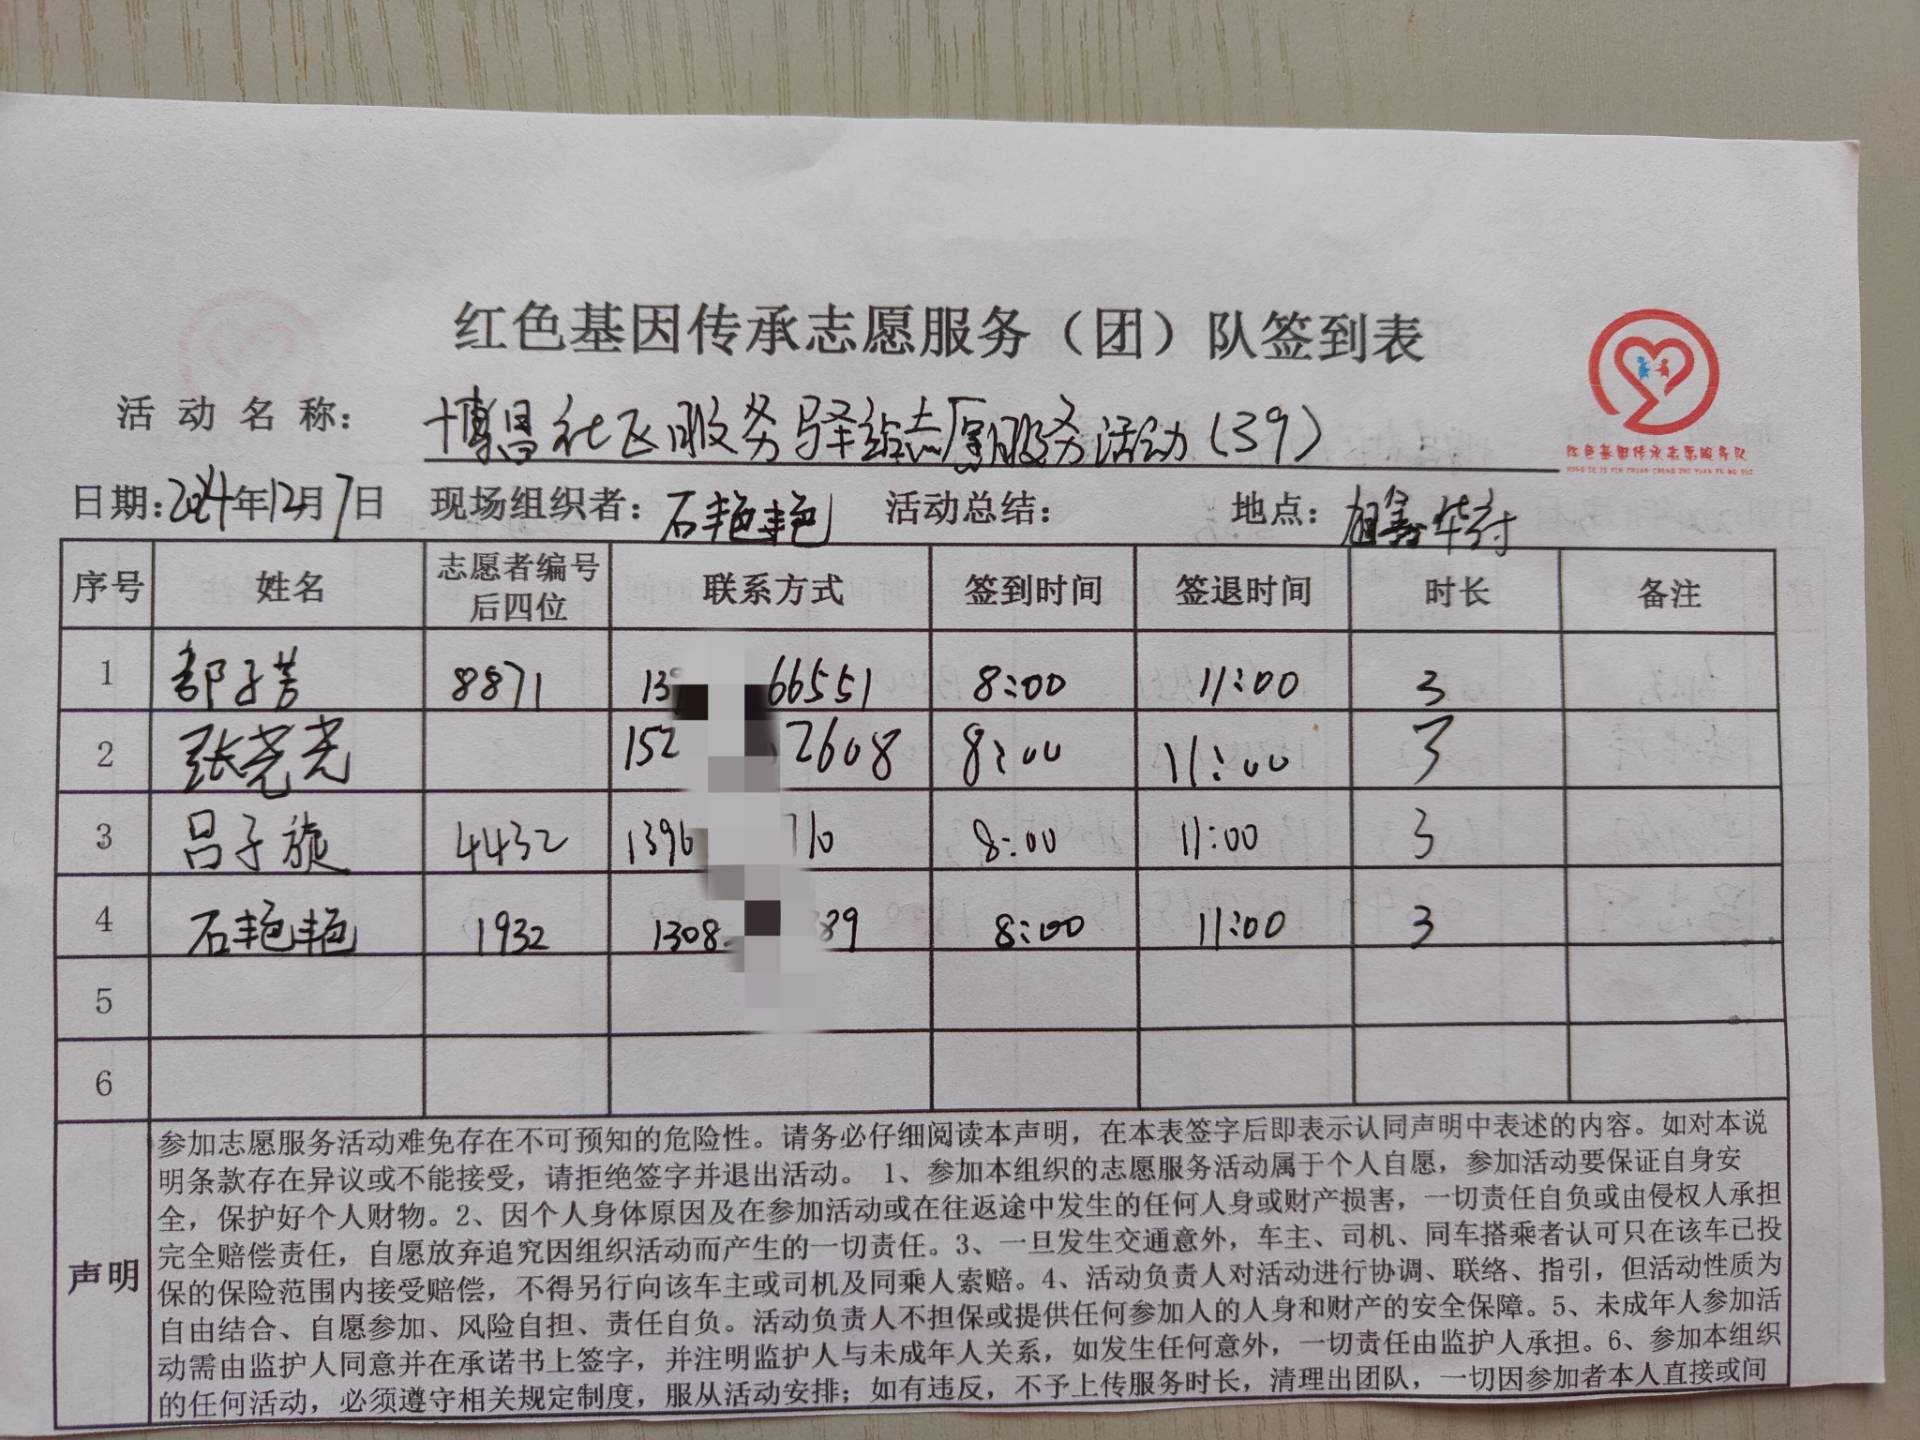 红色基因传承志愿服务（团）队签到表
活动名称： 博昌社区服务驿站志愿服务活动（39）
红色基因传承志愿服务队
HONG SE JI YIN CHUAN CHENG ZHI YUAN FU WU DUI
日期：2024年12月7日 现场组织者：石艳艳 活动总结： 地点：
序号 姓名 志愿者编号后四位 联系方式 签到时间 签退时间 时长 备注
1 郜子芳 8871 13 66551 8:00 11:00 3
2 张尧尧 152 2608 8:00 11:00 3
3 吕子旋 4432 1396 710 8:00 11:00 3
4 石艳艳 1932 1308 89 8:00 11:00 3
5
6
声明
参加志愿服务活动难免存在不可预知的危险性。请务必仔细阅读本声明，在本表签字后即表示认同声明中表述的内容。如对本说
明条款存在异议或不能接受，请拒绝签字并退出活动。 1、参加本组织的志愿服务活动属于个人自愿，参加活动要保证自身安
全，保护好个人财物。2、因个人身体原因及在参加活动或在往返途中发生的任何人身或财产损害，一切责任自负或由侵权人承担
完全赔偿责任，自愿放弃追究因组织活动而产生的一切责任。3、一旦发生交通意外，车主、司机、同车搭乘者认可只在该车已投
保的保险范围内接受赔偿，不得另行向该车主或司机及同乘人索赔。4、活动负责人对活动进行协调、联络、指引，但活动性质为
自由结合、自愿参加、风险自担、责任自负。活动负责人不担保或提供任何参加人的人身和财产的安全保障。5、未成年人参加活
动需由监护人同意并在承诺书上签字，并注明监护人与未成年人关系，如发生任何意外，一切责任由监护人承担。6、参加本组织
的任何活动，必须遵守相关规定制度，服从活动安排；如有违反，不予上传服务时长，清理出团队，一切因参加者本人直接或间